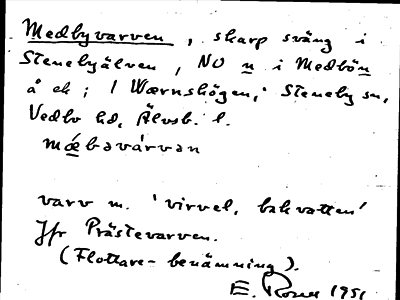 Medbyvarven, skarp sväng i
Stenebyälven, NO n i Medbön
å ek; i Wærnshögen, Steneby sn,
Vedbo hd, Älvsb. l.
mǽbavàrvan
varv m. 'virvel, bakvatten'
Jfr Prästevarven.
(Flottare-benämning).
E. 1951